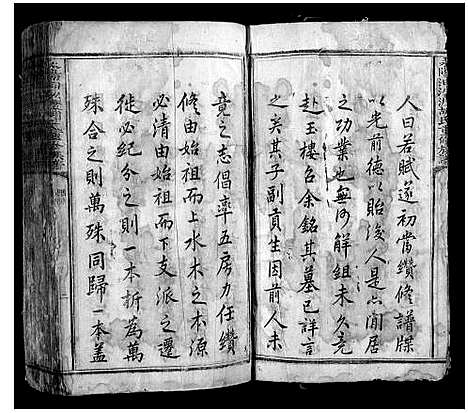 人曰若賦遂初當鑽修譜牒
以光前德以貽後人是亦閒居
之功業也無何解組未久竟
赴玉樓召余銘其墓已詳言
之矣其子副貢生因前人未
竟之志倡率五房力任鑽
修由始祖而上水木之本源
必清由始祖而下支派之遷
徙必紀分之則一本折為萬
殊合之則萬殊同歸一本蓋